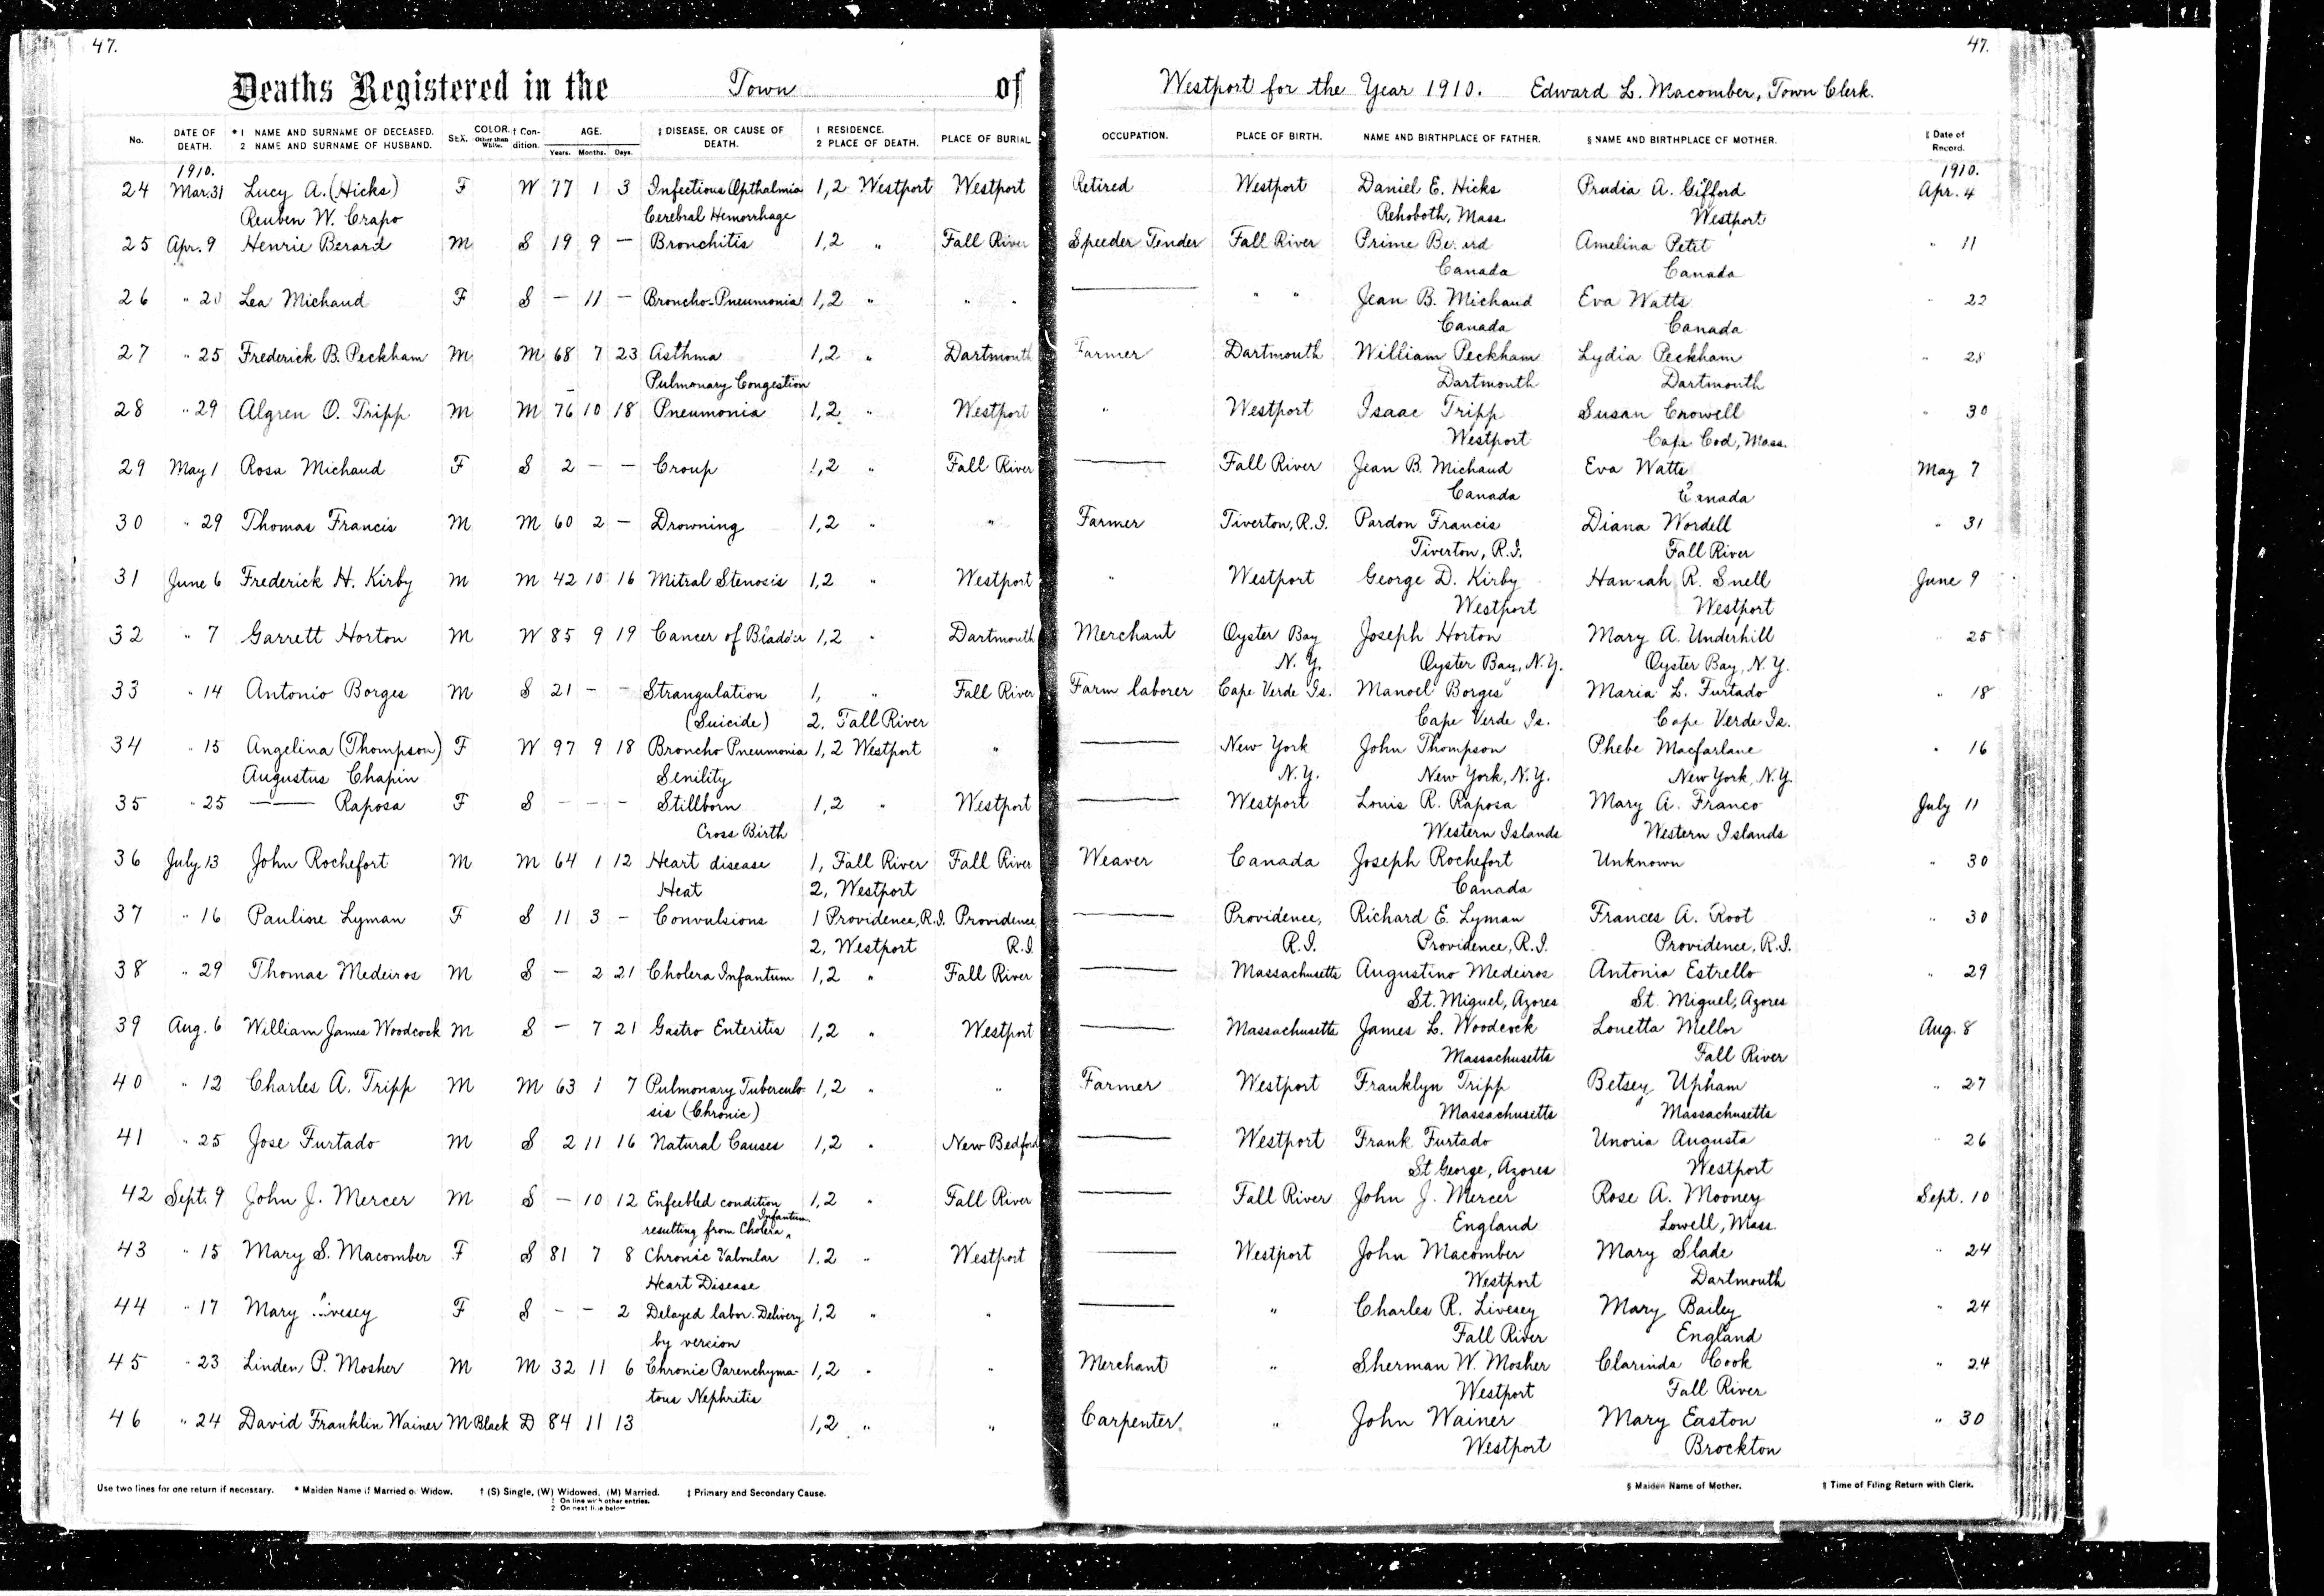 47.
47.
Deaths Registered in the Town of Westport for the Year 1910. Edward L. Macomber, Town Clerk.
No. DATE OF DEATH. *1 NAME AND SURNAME OF DECEASED. 2 NAME AND SURNAME OF HUSBAND. SEX. COLOR. Other than White. † Condition. AGE. Years. Months. Days. ‡ DISEASE, OR CAUSE OF DEATH. 1 RESIDENCE. 2 PLACE OF DEATH. PLACE OF BURIAL OCCUPATION. PLACE OF BIRTH. NAME AND BIRTHPLACE OF FATHER. § NAME AND BIRTHPLACE OF MOTHER. ‖ Date of Record.
1910. 1910.
24 Mar. 31 Lucy A. (Hicks) F W 77 1 3 Infectious Opthalmia 1,2 Westport Westport Retired Westport Daniel E. Hicks Prudia A. Gifford Apr. 4
Reuben W. Crapo Cerebral Hemorrhage Rehoboth, Mass. Westport
25 Apr. 9 Henrie Berard M S 19 9 — Bronchitis 1,2 " Fall River Speeder Tender Fall River Prime Amelina Petit " 11
Canada Canada
26 " 20 Lea Michaud F S — 11 — Broncho-Pneumonia 1,2 " " " — " " Jean B. Michaud Eva Watts " 22
Canada Canada
27 " 25 Frederick B. Peckham M M 68 7 23 Asthma 1,2 " Dartmouth Farmer Dartmouth William Peckham Lydia Peckham " 28
Pulmonary Congestion Dartmouth Dartmouth
28 " 29 Algren O. Tripp M M 76 10 18 Pneumonia 1,2 " Westport " Westport Isaac Tripp Susan Crowell " 30
Westport Cape Cod, Mass.
29 May 1 Rosa Michaud F S 2 — — Croup 1,2 " Fall River — Fall River Jean B. Michaud Eva Watts May 7
Canada Canada
30 " 29 Thomas Francis M M 60 2 — Drowning 1,2 " " Farmer Tiverton, R.I. Pardon Francis Diana Wordell " 31
Tiverton, R.I. Fall River
31 June 6 Frederick H. Kirby M M 42 10 16 Mitral Stenosis 1,2 " Westport " Westport George D. Kirby Hannah R. Snell June 9
Westport Westport
32 " 7 Garrett Horton M W 85 9 19 Cancer of Bladder 1,2 " Dartmouth Merchant Oyster Bay Joseph Horton Mary A. Underhill " 25
N.Y. Oyster Bay, N.Y. Oyster Bay, N.Y.
33 " 14 Antonio Borges M S 21 — — Strangulation 1, " Fall River Farm laborer Cape Verde Is. Manoel Borges Maria L. Furtado " 18
(Suicide) 2, Fall River Cape Verde Is. Cape Verde Is.
34 " 15 Angelina (Thompson) F W 97 9 18 Broncho Pneumonia 1,2 Westport " — New York John Thompson Phebe Macfarlane " 16
Augustus Chapin Senility N.Y. New York, N.Y. New York, N.Y.
35 " 25 — Raposa F S — — — Stillborn 1,2 " Westport — Westport Louis R. Raposa Mary A. Franco July 11
Cross Birth Western Islands Western Islands
36 July 13 John Rochefort M M 64 1 12 Heart disease 1, Fall River Fall River Weaver Canada Joseph Rochefort Unknown " 30
Heat 2, Westport Canada
37 " 16 Pauline Lyman F S 11 3 — Convulsions 1 Providence, R.I. Providence, — Providence, Richard E. Lyman Frances A. Root " 30
2, Westport R.I. R.I. Providence, R.I. Providence, R.I.
38 " 29 Thomas Medeiros M S — 2 21 Cholera Infantum 1,2 " Fall River — Massachusetts Augustino Medeiros Antonia Estrello " 29
St. Miguel, Azores St. Miguel, Azores
39 Aug. 6 William James Woodcock M S — 7 21 Gastro Enteritis 1,2 " Westport — Massachusetts James L. Woodcock Louetta Mellor Aug. 8
Massachusetts Fall River
40 " 12 Charles A. Tripp M M 63 1 7 Pulmonary Tuberculo- 1,2 " " Farmer Westport Franklyn Tripp Betsey Upham " 27
sis (Chronic) Massachusetts Massachusetts
41 " 25 Jose Furtado M S 2 11 16 Natural Causes 1,2 " New Bedford — Westport Frank Furtado Unoria Augusta " 26
St George, Azores Westport
42 Sept. 9 John J. Mercer M S — 10 12 Enfeebled condition 1,2 " Fall River — Fall River John J. Mercer Rose A. Mooney Sept. 10
resulting from Cholera Infantum England Lowell, Mass.
43 " 15 Mary S. Macomber F S 81 7 8 Chronic Valvular 1.2 " Westport — Westport John Macomber Mary Slade " 24
Heart Disease Westport Dartmouth
44 " 17 Mary Livesey F S — — 2 Delayed labor. Delivery 1,2 " " — " Charles R. Livesey Mary Bailey " 24
by vercion Fall River England
45 " 23 Linden P. Mosher M M 32 11 6 Chronic Parenchyma- 1,2 " " Merchant " Sherman W. Mosher Clarinda Cook " 24
tous Nephritis Westport Fall River
46 " 24 David Franklin Wainer M Black D 84 11 13 1,2 " " Carpenter. " John Wainer Mary Easton " 30
Westport Brockton
Use two lines for one return if necessary. * Maiden Name if Married or Widow. † (S) Single, (W) Widowed, (M) Married. ‡ Primary and Secondary Cause. § Maiden Name of Mother. ‖ Time of Filing Return with Clerk.
1 On line with other entries.
2 On next line below